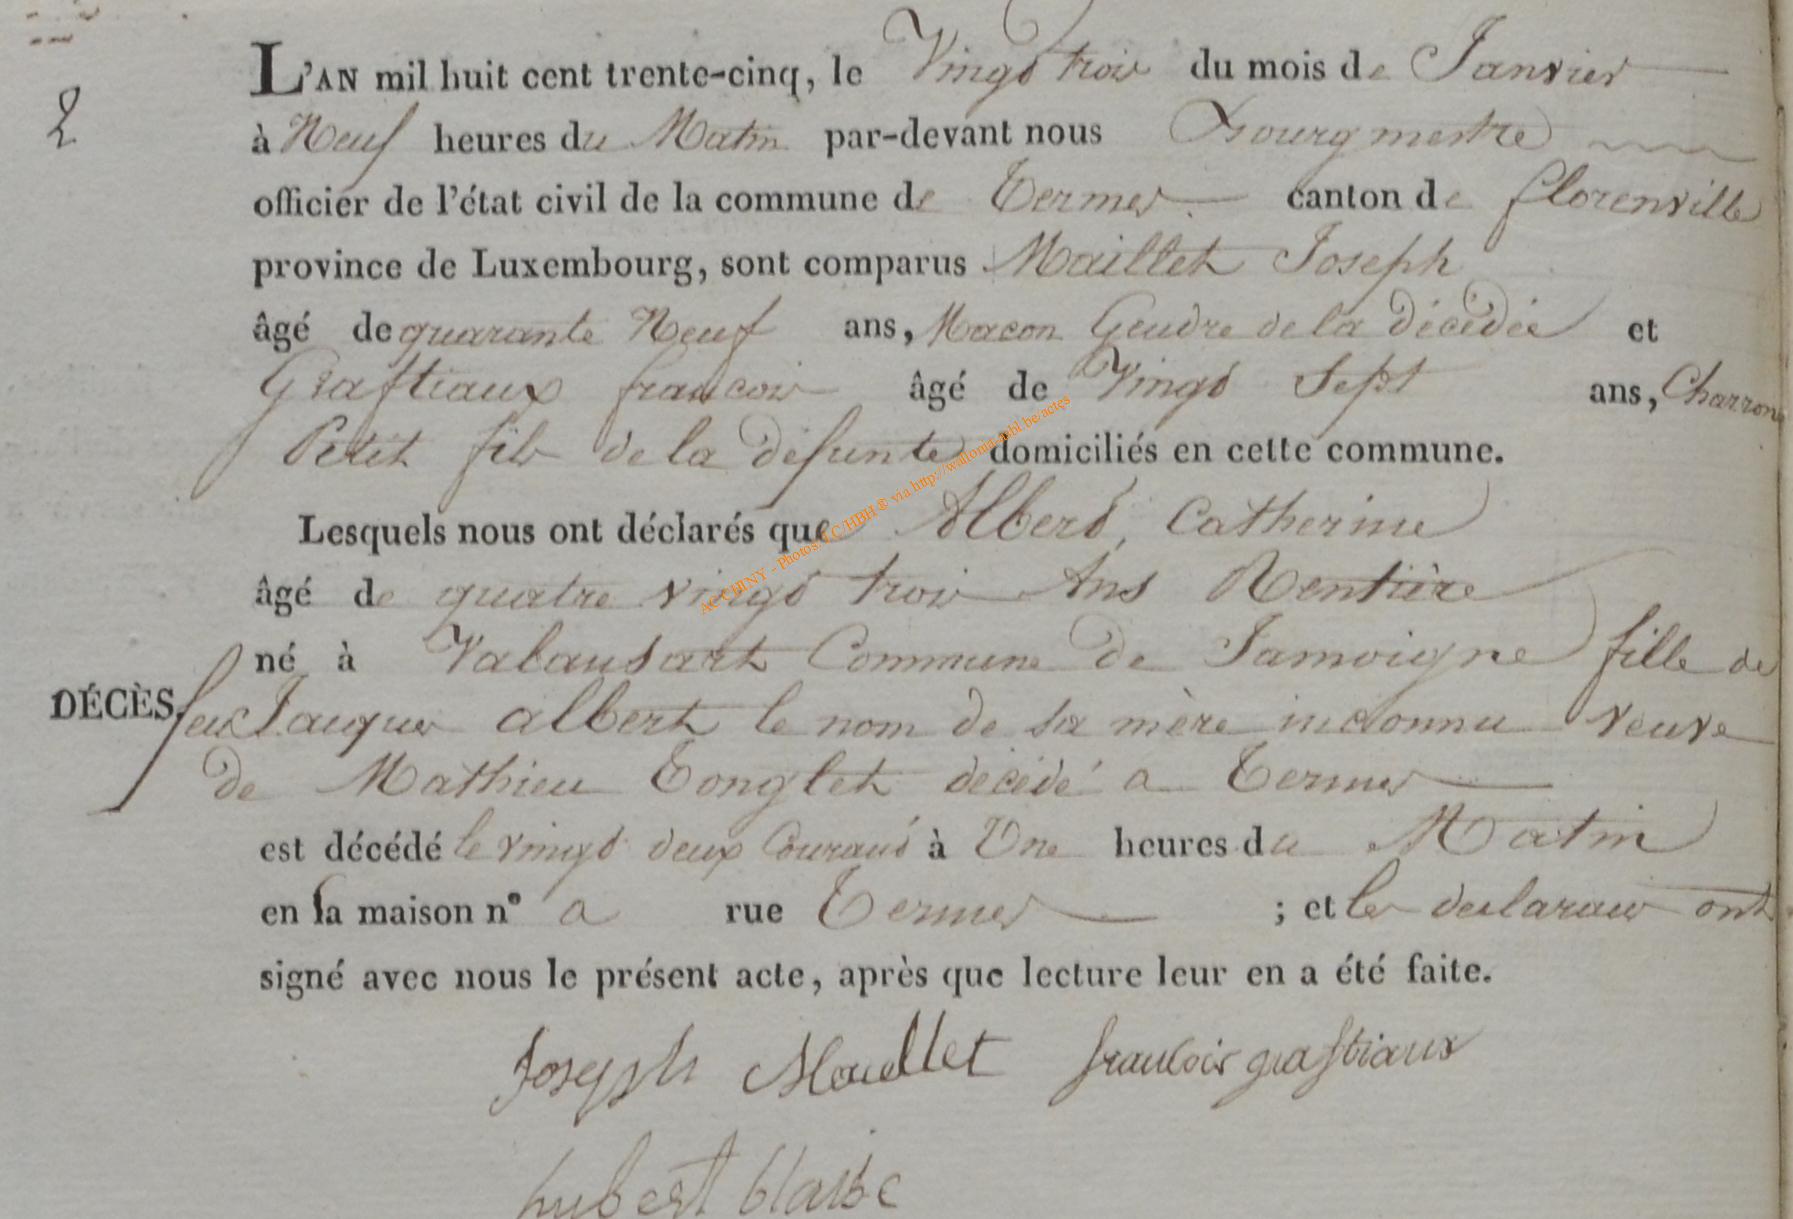 2
L'AN mil huit cent trente-cinq, le Vingt trois du mois de Janvier
à Neuf heures du Matin par-devant nous Bourgmestre
officier de l'état civil de la commune de Termes canton de florenville
province de Luxembourg, sont comparus Maillet Joseph
âgé de quarante Neuf ans, Macon Gendre de la décédée et
Graftiaux francois âgé de Vingt Sept ans, Charron
Petit fils de la défunte domiciliés en cette commune.
Lesquels nous ont déclarés que Albert, Catherine
âgé de quatre vingt trois Ans Rentière
né à Valansart Commune de Jamoigne fille de
DÉCÈS.
feu Jacques albert le nom de sa mère inconnu veuve
de Mathieu Tonglet décédé a Termes
est décédé le vingt deux Courant à Une heures du Matin
en sa maison nº a rue Termes ; et les declarans ont
signé avec nous le présent acte, après que lecture leur en a été faite.
Joseph Maillet francois graftiaux
hubert blaise
AC CHINY - Photos: LC/HBH ® via http://wallonia-asbl.be/actes